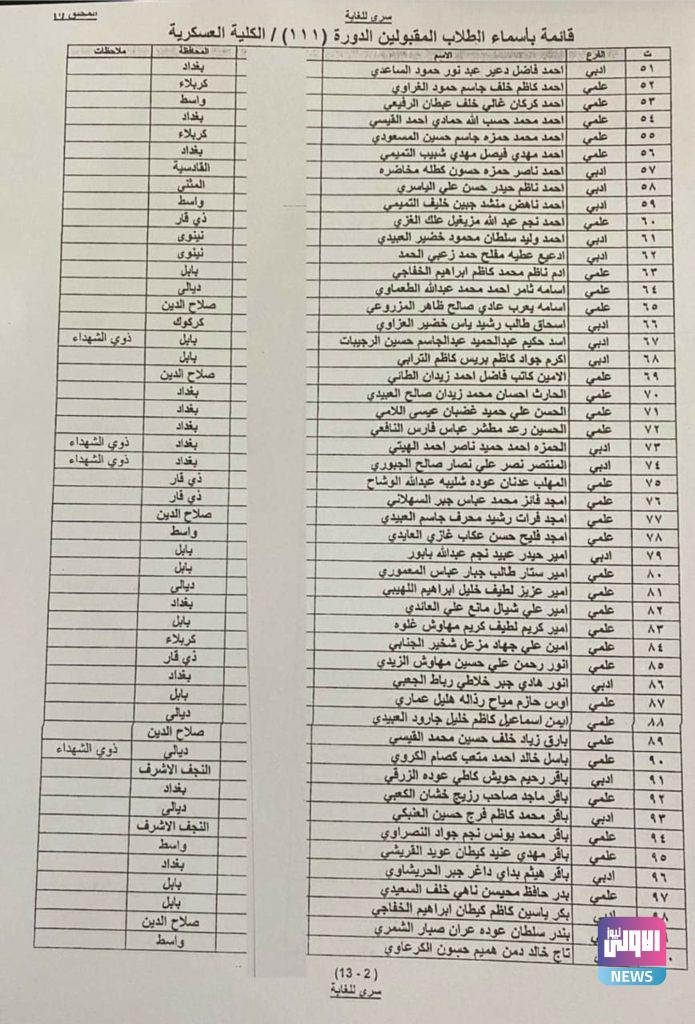 سري للغاية
قائمة بأسماء الطلاب المقبولين الدورة (١١١) / الكلية العسكرية
ت الفرع الاسم المحافظة ملاحظات
٥١ ادبي احمد فاضل دعير عبد نور حمود الساعدي بغداد
٥٢ علمي احمد كاظم خلف جاسم حمود الغراوي كربلاء
٥٣ علمي احمد كركان غالي خلف عبطان الرفيعي واسط
٥٤ علمي احمد محمد حسب الله حمادي احمد القيسي بغداد
٥٥ علمي احمد محمد حمزه جاسم حسين المسعودي كربلاء
٥٦ علمي احمد مهدي فيصل مهدي شبيب التميمي بغداد
٥٧ ادبي احمد ناصر حمزه حسون كطله مخاضره القادسية
٥٨ ادبي احمد ناظم حيدر حسن علي الياسري المثنى
٥٩ ادبي احمد ناهض منشد جبين خليف التميمي واسط
٦٠ علمي احمد نجم عبد الله مزيغيل علك الغزي ذي قار
٦١ ادبي احمد وليد سلطان محمود خضير العبيدي نينوى
٦٢ ادبي ادعيع عطيه مفلح حمد زعبي الحمد نينوى
٦٣ علمي ادم ناظم محمد كاظم ابراهيم الخفاجي بابل
٦٤ علمي اسامه ثامر احمد محمد عبدالله الطعماوي ديالى
٦٥ علمي اسامه يعرب عادي صالح ظاهر المزروعي صلاح الدين
٦٦ ادبي اسحاق طالب رشيد ياس خضير العزاوي كركوك
٦٧ ادبي اسد حكيم عبدالحميد عبدالجاسم حسين الرجيبات بابل ذوي الشهداء
٦٨ ادبي اكرم جواد كاظم بريس كاظم الترابي بابل
٦٩ علمي الامين كاتب فاضل احمد زيدان الطائي صلاح الدين
٧٠ علمي الحارث احسان محمد زيدان صالح العبيدي بغداد
٧١ علمي الحسن علي حميد غضبان عيسى اللامي بغداد
٧٢ علمي الحسين رعد مطشر عباس فارس النافعي بغداد
٧٣ ادبي الحمزه احمد حميد ناصر احمد الهيتي بغداد ذوي الشهداء
٧٤ ادبي المنتصر نصر علي نصار صالح الجبوري بغداد ذوي الشهداء
٧٥ علمي المهلب عدنان عوده شليبه عبدالله الوشاح ذي قار
٧٦ علمي امجد فائز محمد عباس جبر السهلاني ذي قار
٧٧ علمي امجد فرات رشيد محرف جاسم العبيدي صلاح الدين
٧٨ علمي امجد فليح حسن عكاب غازي العايدي واسط
٧٩ ادبي امير حيدر عبيد نجم عبدالله بابور بابل
٨٠ علمي امير ستار طالب جبار عباس المعموري بابل
٨١ علمي امير عزيز لطيف خليل ابراهيم اللهيبي ديالى
٨٢ علمي امير علي شيال مانع علي العائدي بغداد
٨٣ علمي امير كريم لطيف كريم مهاوش علوه بابل
٨٤ علمي امين علي جهاد مزعل شخير الجنابي كربلاء
٨٥ علمي انور رحمن علي حسين مهاوش الزيدي ذي قار
٨٦ ادبي انور هادي جبر خلاطي رباط الجعبي بغداد
٨٧ علمي اوس حازم مياح رذاله هليل عماري بابل
٨٨ علمي ايمن اسماعيل كاظم خليل جارود العبيدي ديالى
٨٩ علمي بارق زياد خلف حسين محمد القيسي صلاح الدين
٩٠ علمي باسل خالد احمد متعب كصام الكروي ديالى ذوي الشهداء
٩١ ادبي باقر رحيم حويش كاطي عوده الزرقي النجف الاشرف
٩٢ علمي باقر ماجد صاحب رزيج خشان الكعبي بغداد
٩٣ ادبي باقر محمد كاظم فرج حسين العنبكي ديالى
٩٤ علمي باقر محمد يونس نجم جواد النصراوي النجف الاشرف
٩٥ علمي باقر مهدي عنيد كيطان عويد القريشي واسط
٩٦ ادبي باقر هيثم بداي داغر جبر الحريشاوي بغداد
٩٧ علمي بدر حافظ محيسن ناهي خلف السعيدي بابل
٩٨ ادبي بكر ياسين كاظم كيطان ابراهيم الخفاجي بابل
بندر سلطان عوده عران صبار الشمري صلاح الدين
تاج خالد دمن هميم حسون الكرعاوي واسط
(13 - 2)
سري للغاية
الاولى نيوز
NEWS